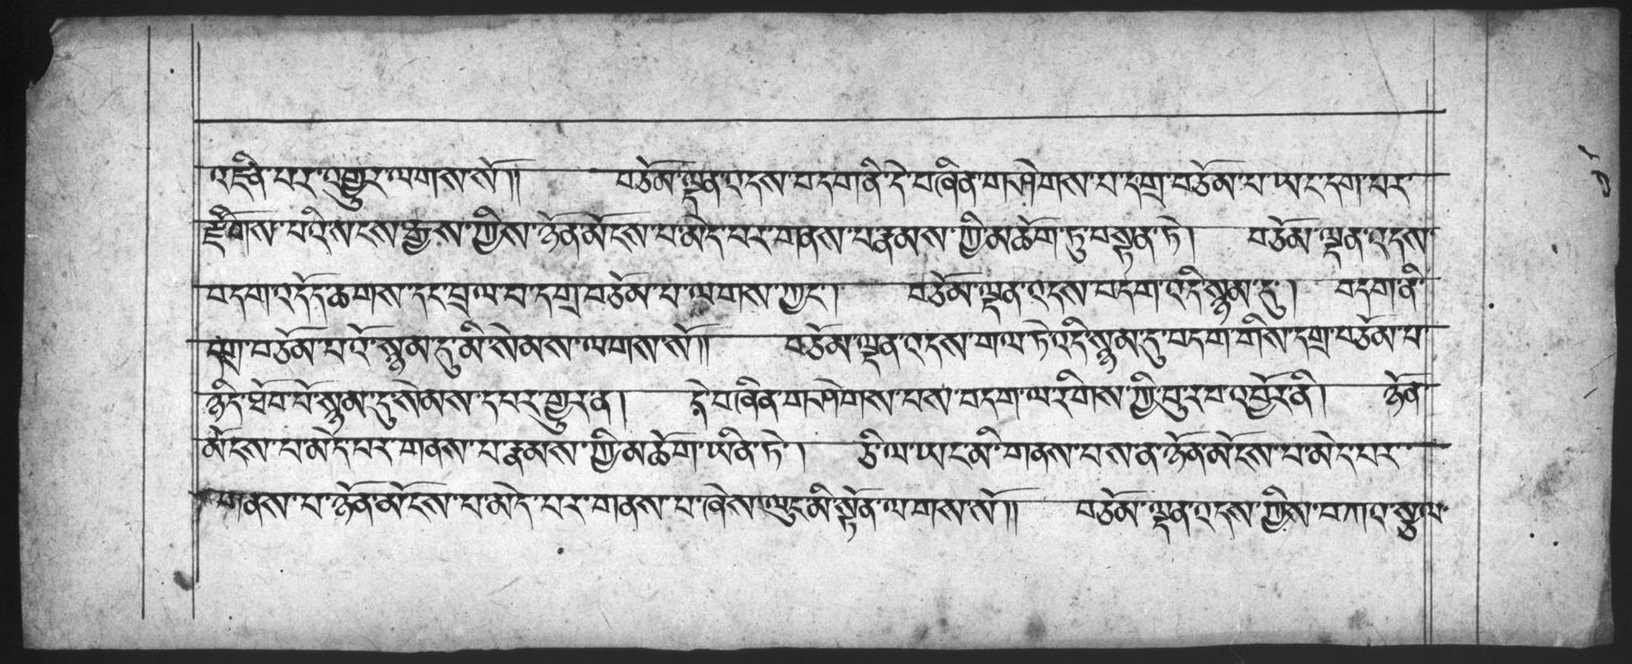 འཛིན་པར་འགྱུར་ལགས་སོ།། བཅོམ་ལྡན་འདས་བདག་ནི་དེ་བཞིན་གཤེགས་པ་དགྲ་བཅོམ་པ་ཡང་དག་པར་
རྫོགས་པའི་སངས་རྒྱས་ཀྱིས་ཉོན་མོངས་པ་མེད་པར་གནས་པ་རྣམས་ཀྱི་མཆོག་ཏུ་བསྟན་ཏེ། བཅོམ་ལྡན་འདས་
བདག་འདོད་ཆགས་དང་བྲལ་བ་དགྲ་བཅོམ་པ་ལགས་ཀྱང་། བཅོམ་ལྡན་འདས་བདག་འདི་སྙམ་དུ། བདག་ནི་
དགྲ་བཅོམ་པའོ་སྙམ་དུ་མི་སེམས་ལགས་སོ།། བཅོམ་ལྡན་འདས་གལ་ཏེ་འདི་སྙམ་དུ་བདག་གིས་དགྲ་བཅོམ་པ་
ཉིད་ཐོབ་པོ་སྙམ་དུ་སེམས་དཔར་གྱུར་ན། དེ་བཞིན་གཤེགས་པས་བདག་ལ་རིགས་ཀྱི་བུ་རབ་འབྱོར་ནི། ཉོན་
མོངས་པ་མེད་པར་གནས་པ་རྣམས་ཀྱི་མཆོག་ཡིན་ཏེ། ཅི་ལ་ཡང་མི་གནས་པས་ན་ཉོན་མོངས་པ་མེད་པར་
གནས་པ་ཉོན་མོངས་པ་མེད་པར་གནས་པ་ཞེས་ལུང་མི་སྟོན་ལགས་སོ།། བཅོམ་ལྡན་འདས་ཀྱིས་བཀའ་སྩལ་